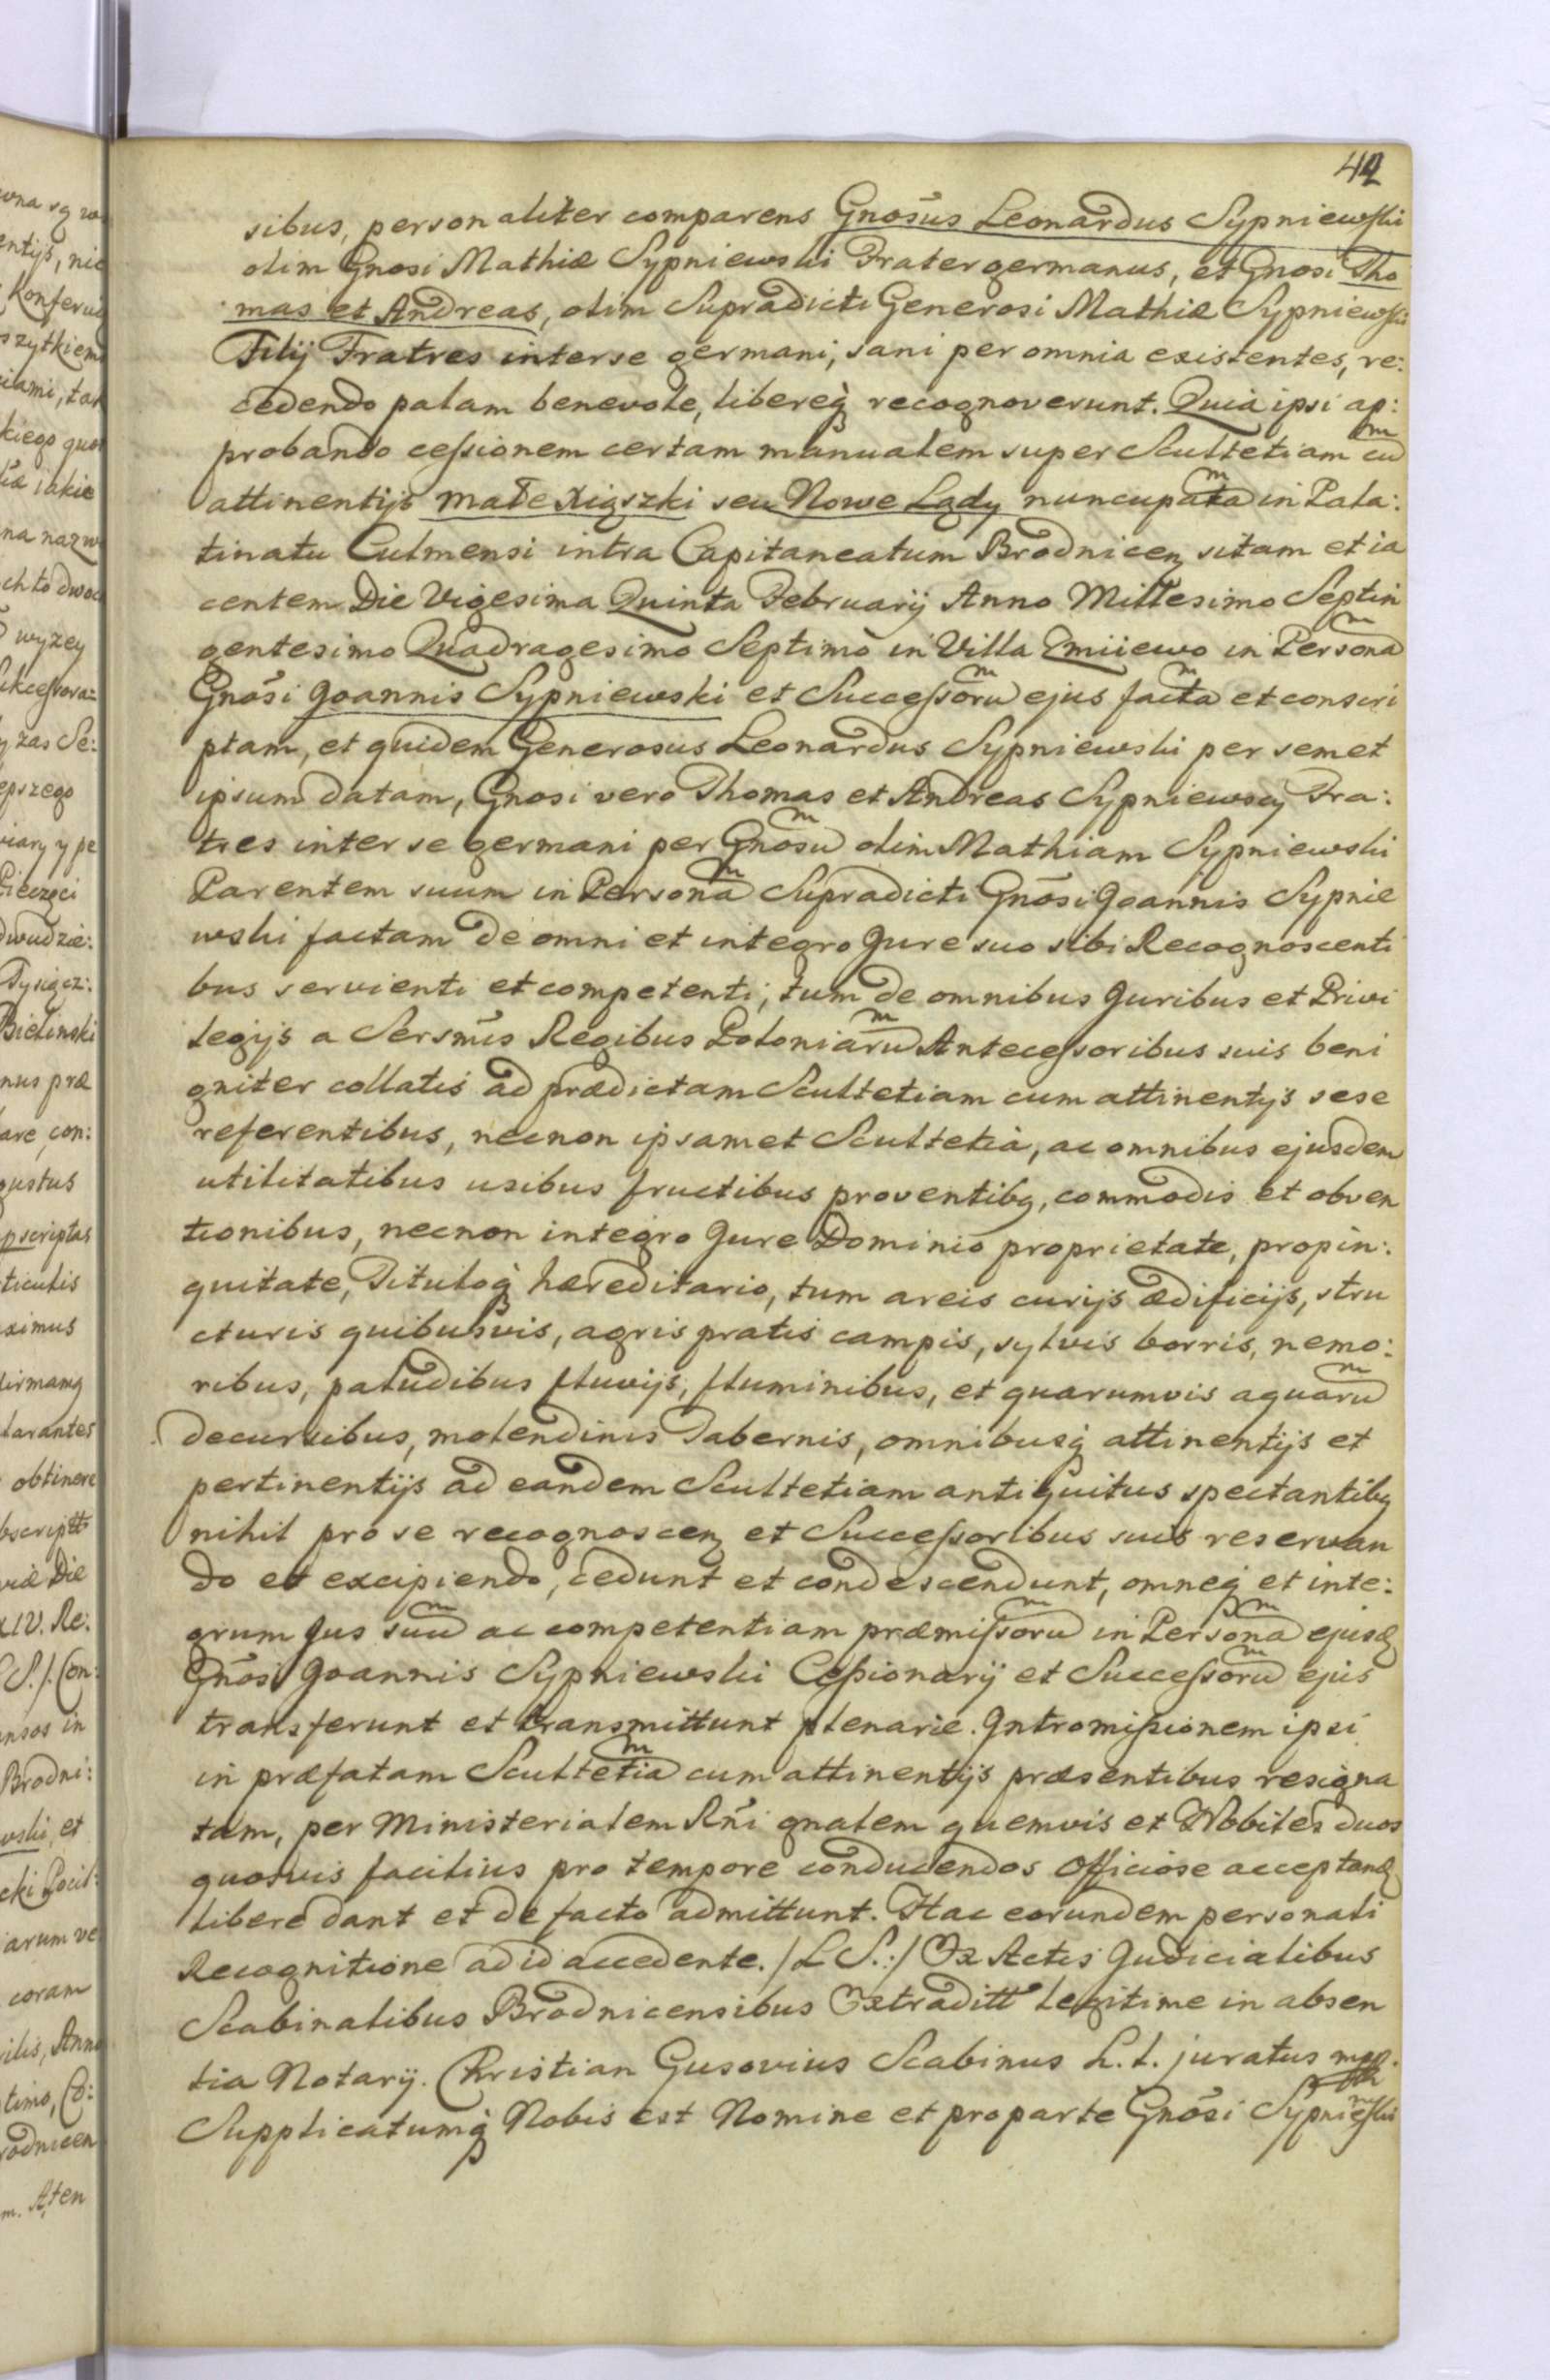 42
sibus, personaliter comparens Gnōsus Leonardus Sypniewski
olim Gnosi Mathiæ Sypniewski Frater germanus, et Gnosi Tho
mas et Andreas, olim Supradicti Generosi Mathiæ Sypniewski
Filij Fratres interse germani, sani per omnia existentes, re:
cedendo palam benevole, libereq̀ recognoverunt. Quia ipsi ap:
probando cessionem certam manualem super Scultetiam cuͫ
attinentijs małe Xiąszki seu Nowe Lądy nuncupataͫ in Pala:
tinatu Culmensi intra Capitaneatum Brodnicen̨ sitam et ia
centem Die Vigesima Quinta Februarij Anno Millesimo Septin
gentesimo Quadragesimo Septimo in Villa Zmiiewo in Personaͫ
Gnōsi Joannis Sypniewski et Successoruͫ ejus factaͫ et conscri
ptam, et quidem Generosus Leonardus Sypniewski per semet
ipsum datam, Gnosi vero Thomas et Andreas Sypniewscy Fra:
tres inter se germani per Gnosuͫ olim Mathiam Sypniewski
Parentem suum in Personaͫ Supradicti Gnōsi Joannis Sypnie
wski factam de omni et integro Jure suo sibi Recognoscenti
bus servienti et competenti, tum de omnibus Juribus et Privi
legijs a Sersmīs Regibus Poloniaruͫ Antecessoribus suis beni
gniter collatis ad prædictam Scultetiam cum attinentijs sese
referentibus, necnon ipsamet Scultetià, ac omnibus ejusdem
utilitatibus usibus fructibus proventibꝰ, commodis et obven
tionibus, necnon integro Jure Dominio proprietate, propin:
quitate, Tituloq̀ hæreditario, tum areis curijs ædificijs, stru
cturis quibusvis, agris pratis campis, sylvis borris, nemo:
ribus, paludibus fluvijs, fluminibus, et quarumvis aquaruͫ
decursibus, molendinis Tabernis, omnibusq̀ attinentijs et
pertinentijs ad eandem Scultetiam antiquitus spectantibꝰ
nihil pro se recognoscen̨ et Successoribus suis reservan
do et excipiendo, cedunt et condescendunt, omneq̀ et inte:
grum Jus suuͫ ac competentiam præmissoruͫ in Personaͫ ejusđ
Gnōsi Joannis Sypniewski Cessionarij et Successoruͫ ejus
transferunt et transmittunt plenarie. Intromissionem ipsi
in præfatam Scultetiaͫ cum attinentijs præsentibus resigna
tam, per Ministerialem Rñi gnalem quemvis et Nobiles duos
quosvis facilius pro tempore conducendos Officiose acceptanđ
libere dant et de facto admittunt. Hac eorundem personali
Recognitione ad id accedente. /L S.:/ Ex Actis Judicialibus
Scabinalibus Brodnicensibus Extraditt legitime in absen
tia Notarij. Christian Gusovius Scabinus h. t. juratus mpp.
Supplicatumq̀ Nobis est Nomine et pro parte Gnōsi Sypnieͫski